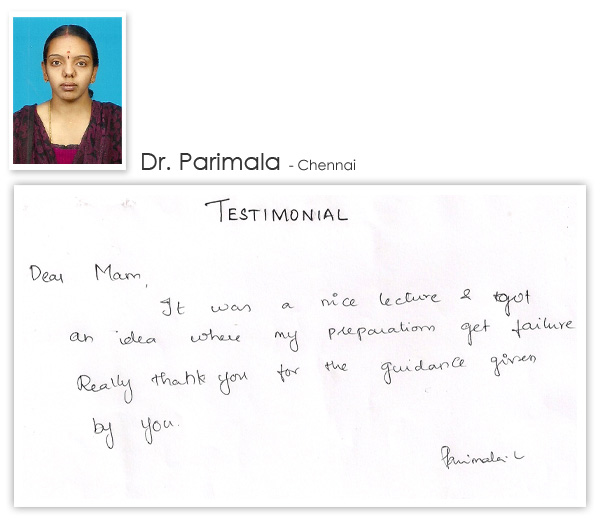 Dr. Parimala - Chennai
TESTIMONIAL
Dear Mam,
It was a nice lecture & got
an idea where my preparation get failure
Really thank you for the guidance given
by you.
Parimala. L